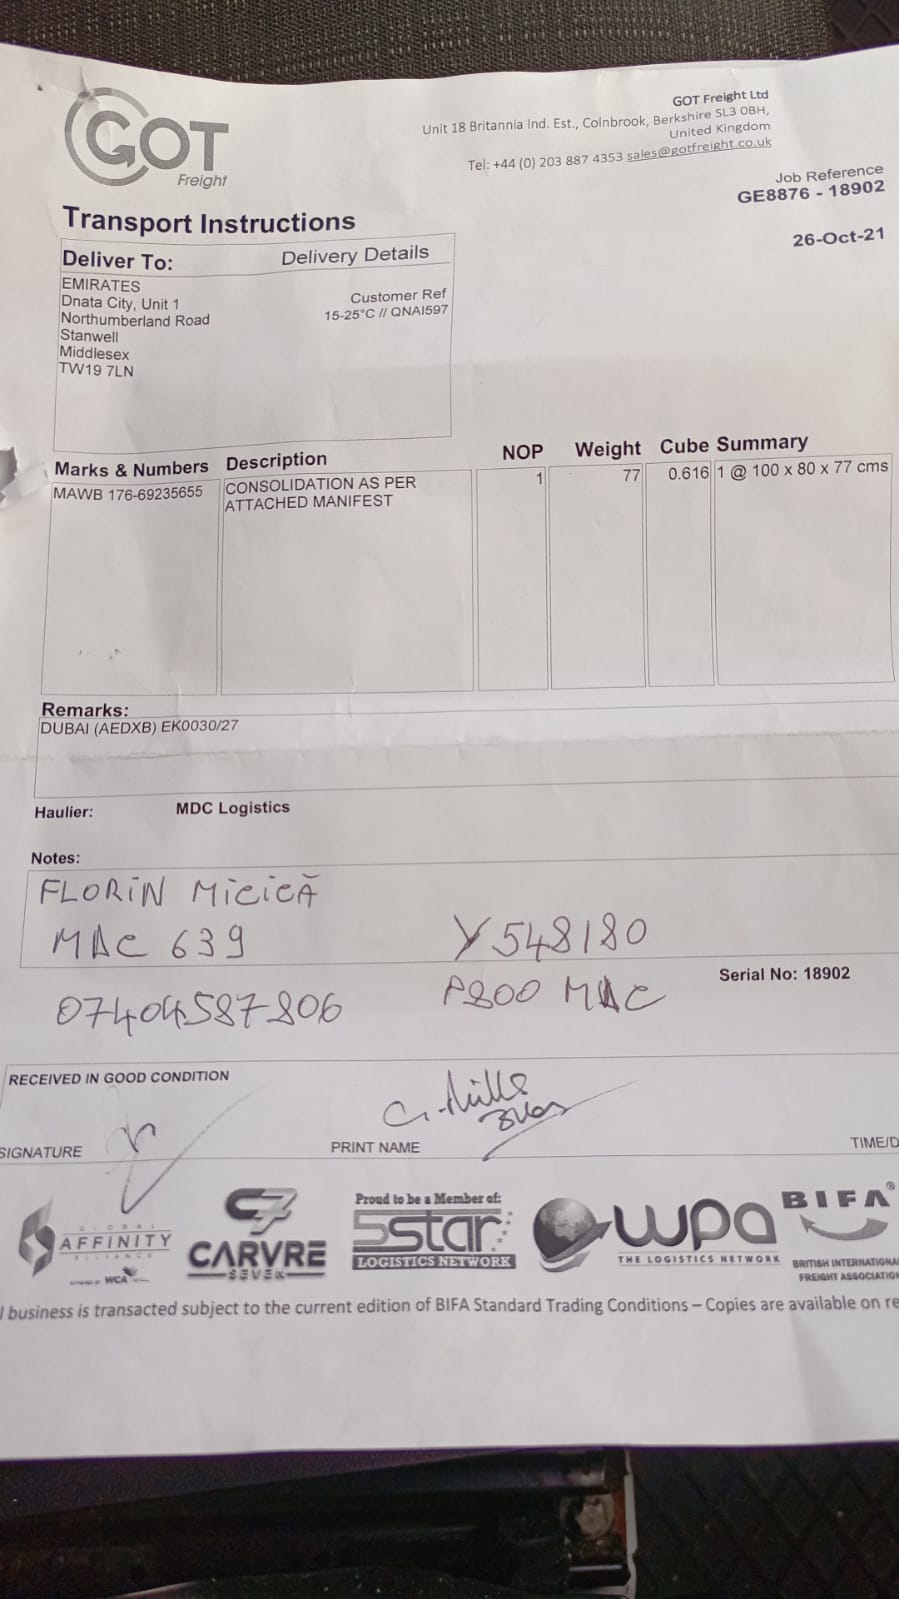 GOT
Freight
GOT Freight Ltd
Unit 18 Britannia Ind. Est., Colnbrook, Berkshire SL3 0BH,
United Kingdom
Tel: +44 (0) 203 887 4353 sales@gotfreight.co.uk
Job Reference
GE8876 - 18902
26-Oct-21
Transport Instructions
Deliver To: Delivery Details
EMIRATES
Dnata City, Unit 1
Northumberland Road
Stanwell
Middlesex
TW19 7LN
Customer Ref
15-25°C // QNAI597
Marks & Numbers Description NOP Weight Cube Summary
MAWB 176-69235655 CONSOLIDATION AS PER 1 77 0.616 1 @ 100 x 80 x 77 cms
ATTACHED MANIFEST
Remarks:
DUBAI (AEDXB) EK0030/27
Haulier: MDC Logistics
Notes:
FLORIN MICICĂ
MAC 639 Y548180
Serial No: 18902
07404587806 P800 MAC
RECEIVED IN GOOD CONDITION
SIGNATURE PRINT NAME TIME/D
GLOBAL
AFFINITY
ALLIANCE
WCA
C7
CARVRE
SEVEN
Proud to be a Member of:
5star
LOGISTICS NETWORK
wpa
THE LOGISTICS NETWORK
BIFA®
BRITISH INTERNATIONA
FREIGHT ASSOCIATION
l business is transacted subject to the current edition of BIFA Standard Trading Conditions – Copies are available on re